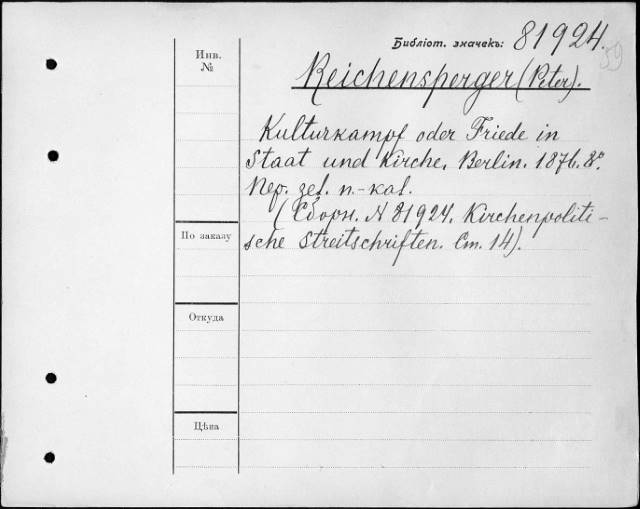 Библіот. значекъ: 81924.
59
Инв.
№
Reichensperger (Peter).
Kulturkampf oder Friede in
Staat und Kirche. Berlin. 1876. 8º.
Пер. zel. п.-kal.
(Сборн. № 81924. Kirchenpoliti-
sche Streitschriften. Ст. 14).
По заказу
Откуда
Цѣна